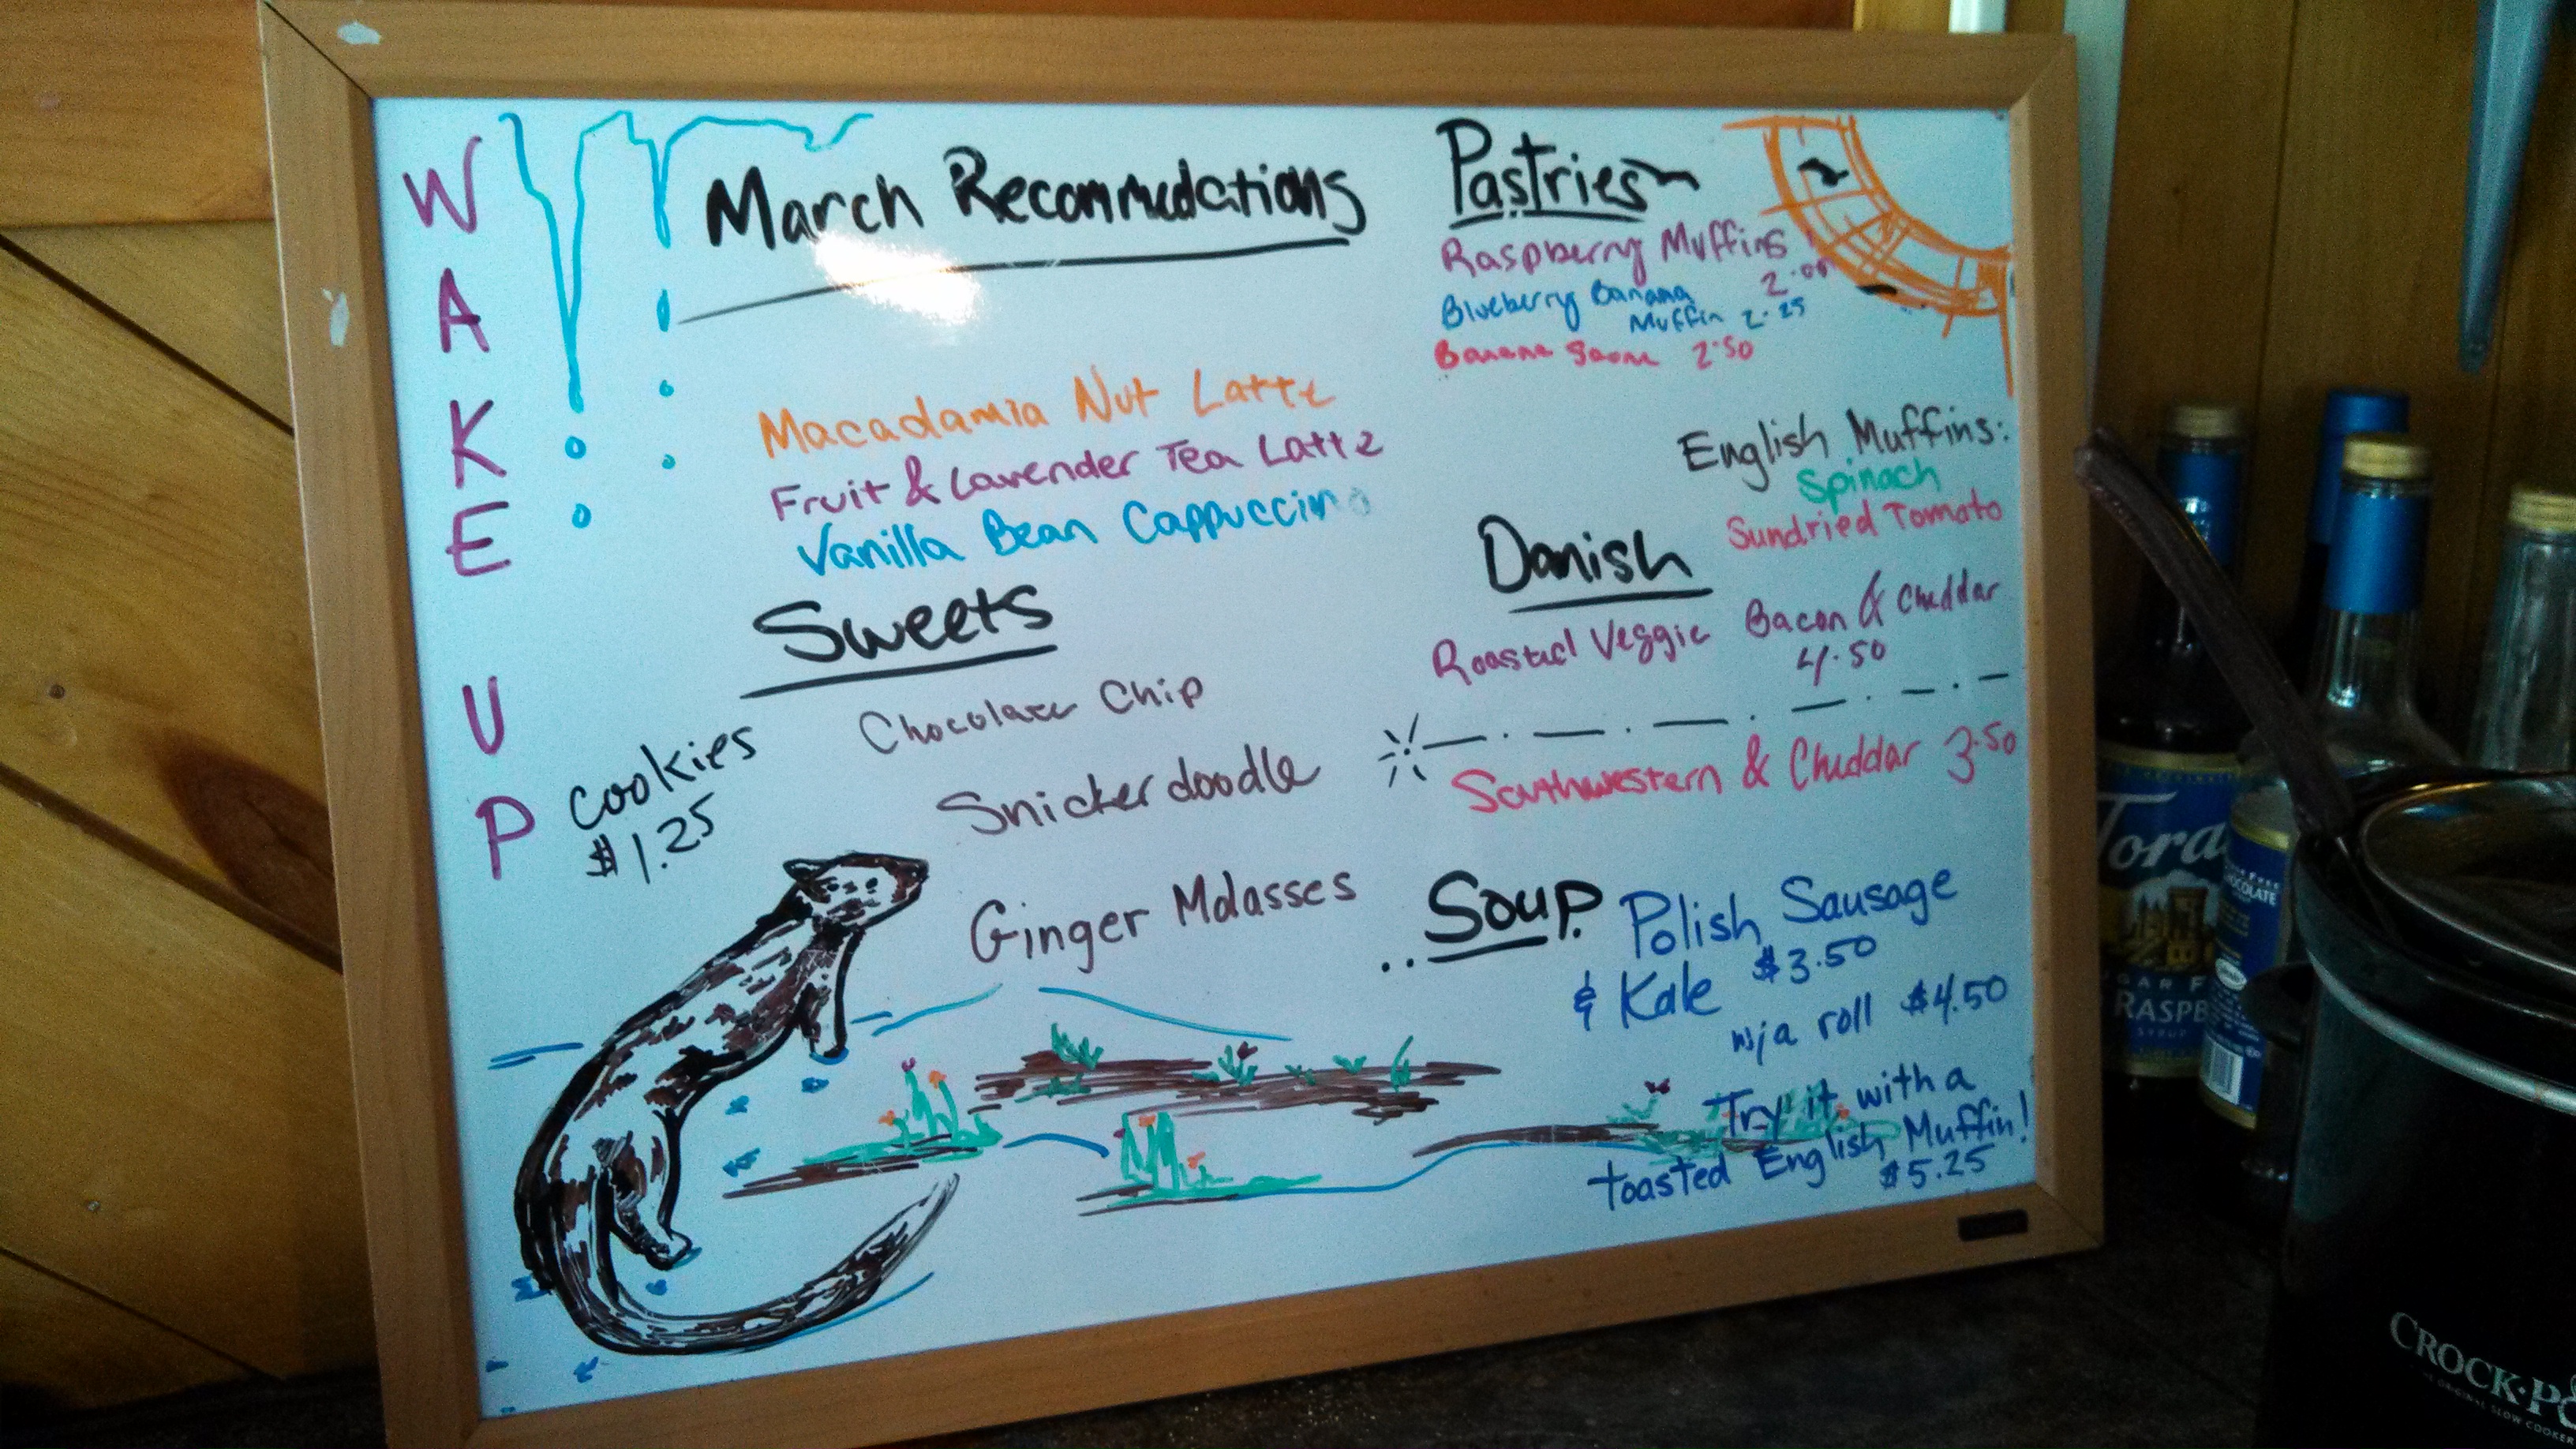 WAKE UP
March Recommedations
Macadamia Nut Latte
Fruit & Lavender Tea Latte
Vanilla Bean Cappuccino
Sweets
Cookies
$1.25
Chocolate Chip
Snickerdoodle
Ginger Molasses
Pastries
Raspberry Muffins
2.00
Blueberry Banana
Muffin 2.25
Banana Scone 2.50
English Muffins:
Spinach
Sundried Tomato
Danish
Roasted Veggie
Bacon & Cheddar
4.50
Southwestern & Cheddar 3.50
Soup
Polish Sausage
& Kale $3.50
w/a roll $4.50
Try it with a
toasted English Muffin!
$5.25
Tora
RASPB
CHOCOLATE
CROCK-PO